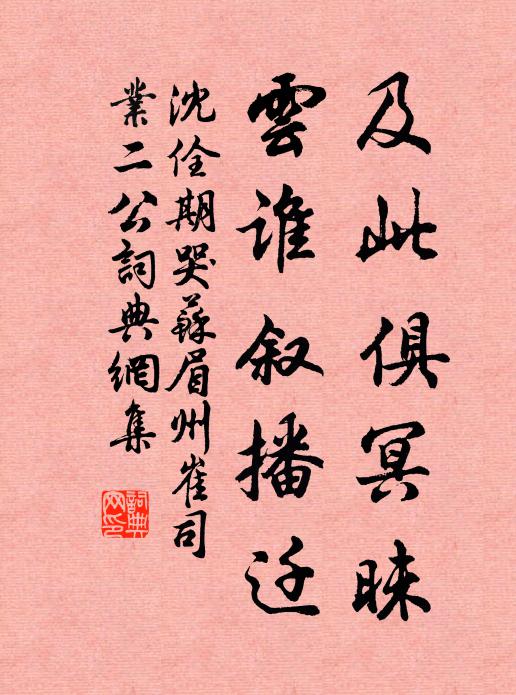 及此俱冥昧
雲谁叙播迁
沈佺期哭蘇眉州崔司
業二公詞典網集
詞典
网印